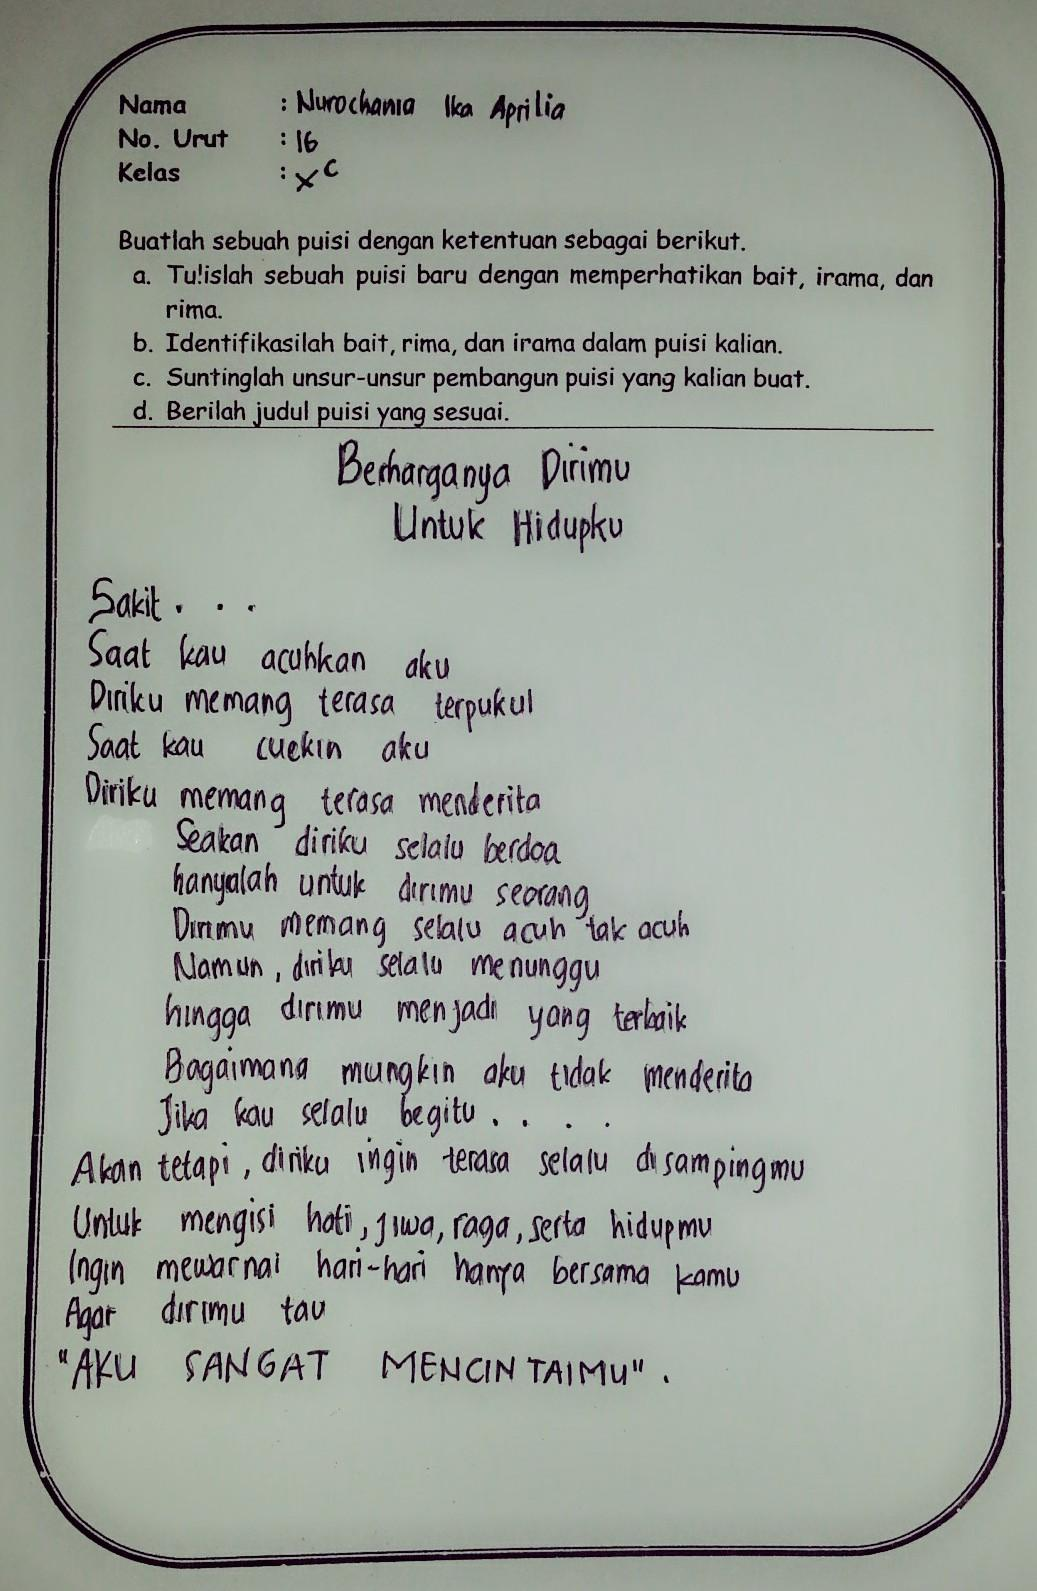 Nama : Nurochania Ika Aprilia
No. Urut : 16
Kelas : X C
Buatlah sebuah puisi dengan ketentuan sebagai berikut.
a. Tulislah sebuah puisi baru dengan memperhatikan bait, irama, dan
rima.
b. Identifikasilah bait, rima, dan irama dalam puisi kalian.
c. Suntinglah unsur-unsur pembangun puisi yang kalian buat.
d. Berilah judul puisi yang sesuai.
Berharganya Dirimu
Untuk Hidupku
Sakit . . .
Saat kau acuhkan aku
Diriku memang terasa terpukul
Saat kau cuekin aku
Diriku memang terasa menderita
Seakan diriku selalu berdoa
hanyalah untuk dirimu seorang
Dirimu memang selalu acuh tak acuh
Namun, diriku selalu menunggu
hingga dirimu menjadi yang terbaik
Bagaimana mungkin aku tidak menderita
Jika kau selalu begitu . . . .
Akan tetapi, diriku ingin terasa selalu disampingmu
Untuk mengisi hati, jiwa, raga, serta hidupmu
Ingin mewarnai hari-hari hanya bersama kamu
Agar dirimu tau
"AKU SANGAT MENCINTAIMU".